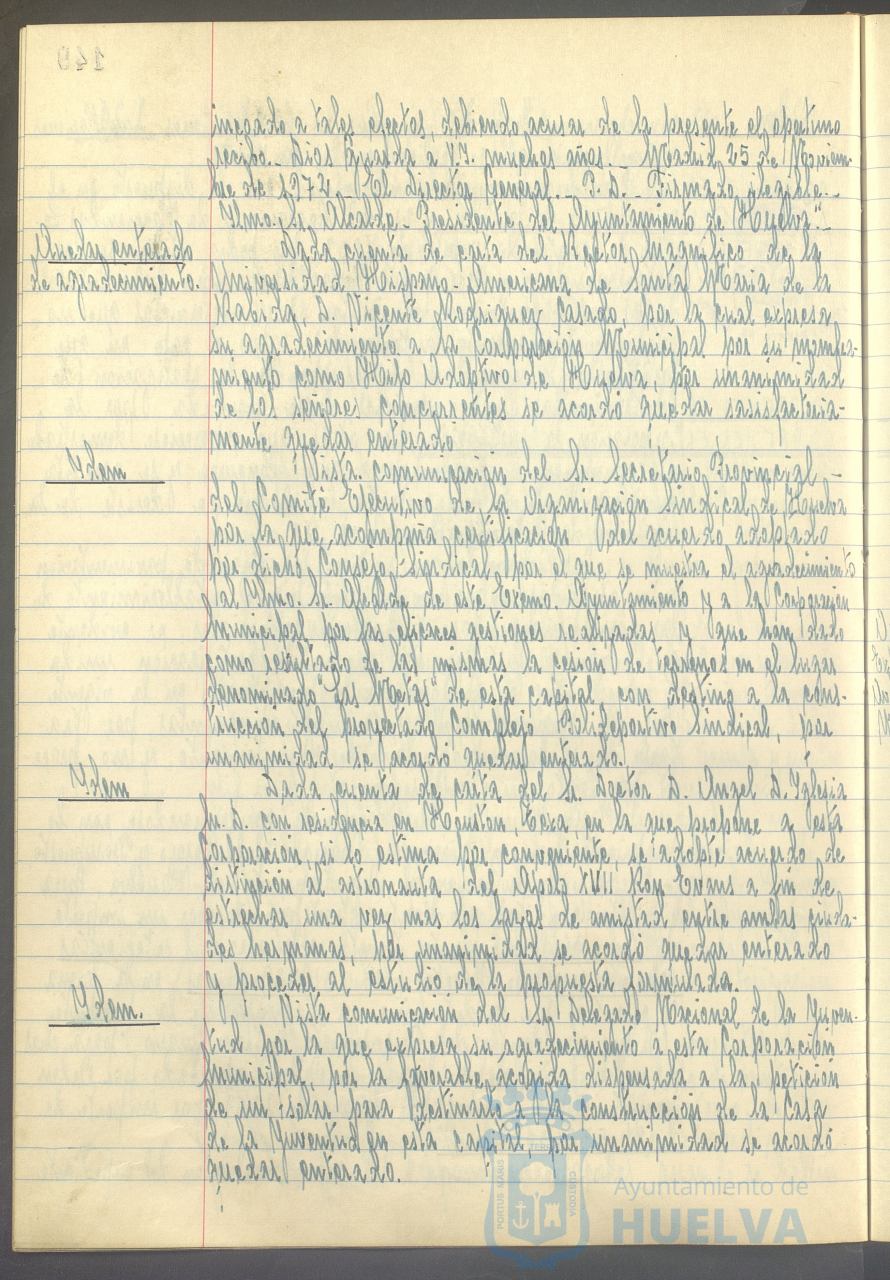 incoado a tales efectos, debiendo acusar de la presente el oportuno
recibo.- Dios guarde a V.I. muchos años. - Madrid 25 de Noviem-
bre de 1972 - El Director General. - P. D. - Firmado ilegible.-
Ilmo. Sr. Alcalde - Presidente del Ayuntamiento de Huelva".-
Quedar enterado
de agradecimiento.
Dada cuenta de carta del Rector Magnífico de la
Universidad Hispano-Americana de Santa María de la
Rabida D. Vicente Rodriguez Casado, por la cual expresa
su agradecimiento a la Corporación Municipal por su nombra-
miento como Hijo Adoptivo de Huelva, por unanimidad
de los señores concurrentes se acordó quedar satisfactoria-
mente quedar enterado.
Idem
Vista comunicación del Sr. Secretario Provincial -
del Comité Ejecutivo de la Organización Sindical de Huelva
por la que acompaña certificación del acuerdo adoptado
por dicho Consejo Sindical por el que se muestra el agradecimiento
al Ilmo. Sr. Alcalde de este Excmo. Ayuntamiento y a la Corporación
Municipal por las eficaces gestiones realizadas y que han dado
como resultado de las mismas la cesión de terrenos en el lugar
denominado "Las Metas" de esta capital con destino a la cons-
trucción del proyectado Complejo Polideportivo Sindical, por
unanimidad se acordó quedar enterado.
Idem
Dada cuenta de carta del Sr. Doctor D. Angel D. Iglesia
M. D. con residencia en Houston, Texa, en la que propone a esta
Corporación, si lo estima por conveniente, se adopte acuerdo de
distinción al astronauta del Apolo XVII Ron Evans a fin de
estrechar una vez mas los lazos de amistad entre ambas ciuda-
des hermanas, por unanimidad se acordó quedar enterado
y proceder al estudio de la propuesta formulada.
Idem.
Vista comunicación del Sr. Delegado Nacional de la Juven-
tud por la que expresa su agradecimiento a esta Corporación
Municipal, por la favorable acogida dispensada a la petición
de un solar para destinarlo a la construcción de la Casa
de la Juventud en esta capital, por unanimidad se acordó
quedar enterado.
PORTUS MARIS
CUSTODIA
Ayuntamiento de
HUELVA